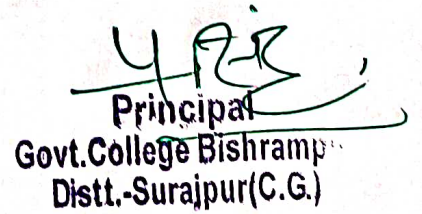 Principal
Govt.College Bishramp
Distt.-Surajpur(C.G.)